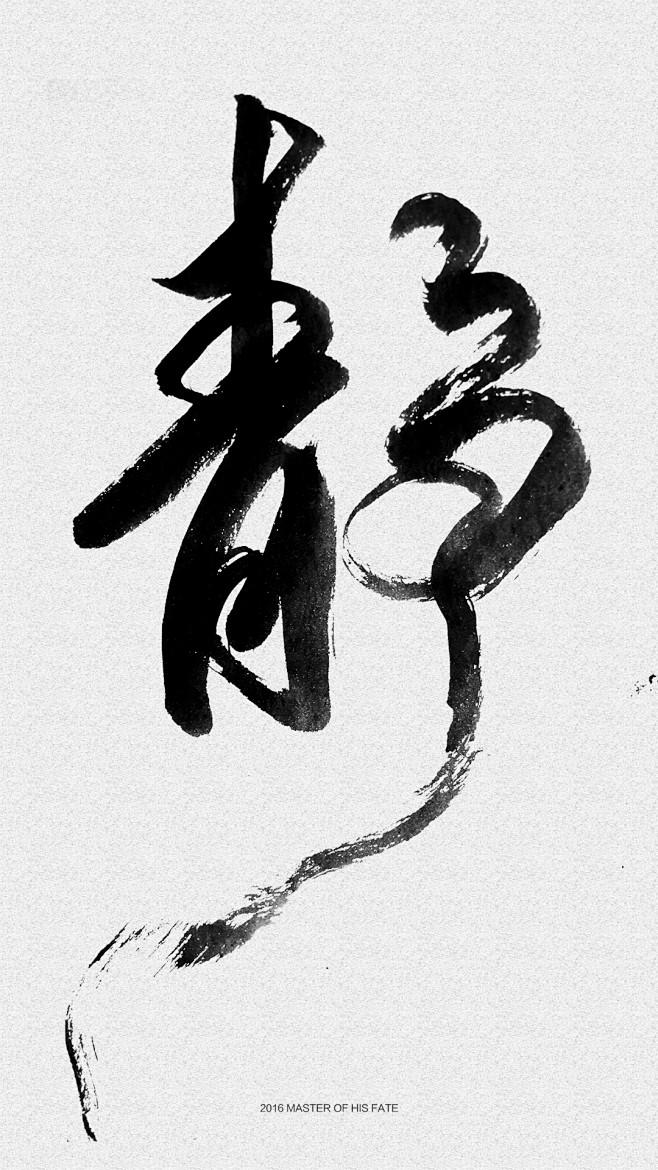 静
2016 MASTER OF HIS FATE